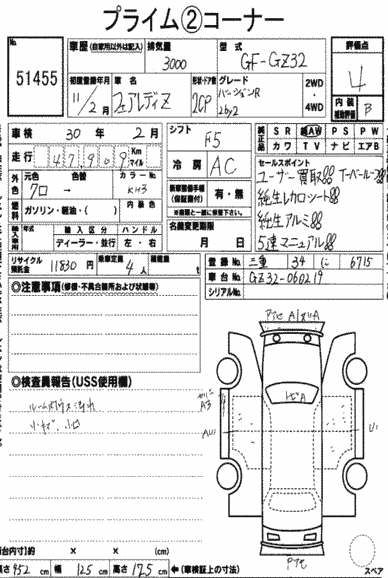 プライム②コーナー
No.
51455
車歴 (自家用以外は記入)
排気量
3000
型式
GF-GZ32
評価点
4
初度登録年月
11/2月
車名
フェアレディZ
形状・ドア数
2CP
グレード
バージョンR
2by2
2WD
・
4WD
内装
補助評価
B
車検 30年 2月
シフト
F5
純正品
SR 純AW PS PW
カワ TV ナビ エアB
走行 47,909 Km
マイル
冷房
AC
セールスポイント
ユーザー買取
Tーバールーフ
純正レカロシート
純正アルミ
5速マニュアル
外色
元色
クロ→
色替
カラーNo.
KH3
新車整備手帳
(保証書付)
有・無
※過給と一緒に保管下さい。
燃料
ガソリン・軽油・( )
内装色
名義変更期限
月 日
輸入車
年式
輸入区分
ディーラー・並行
ハンドル
左・右
リサイクル
預託金
11830円
乗車定員
4人
積載量
t
登録No.
三重 34 に 6715
車台No.
GZ32-060219
シリアルNo.
◎注意事項(修復・不具合箇所および状態等)
◎検査員報告(USS使用欄)
ルームガラス
小キズ、小凹
A3
AU1
U1
(荷台内寸)約 × × (cm)
長さ 452 cm 幅 125 cm 高さ 125 cm ←(車検証上の寸法)
スペア